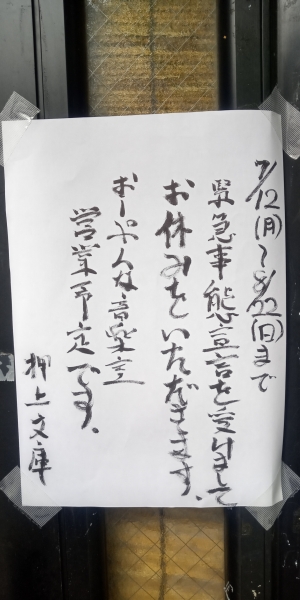 7/12(月)〜8/22(日)まで
緊急事態宣言を受けまして
お休みをいただきます。
おーぷんな音楽室
営業予定です。
押上文庫